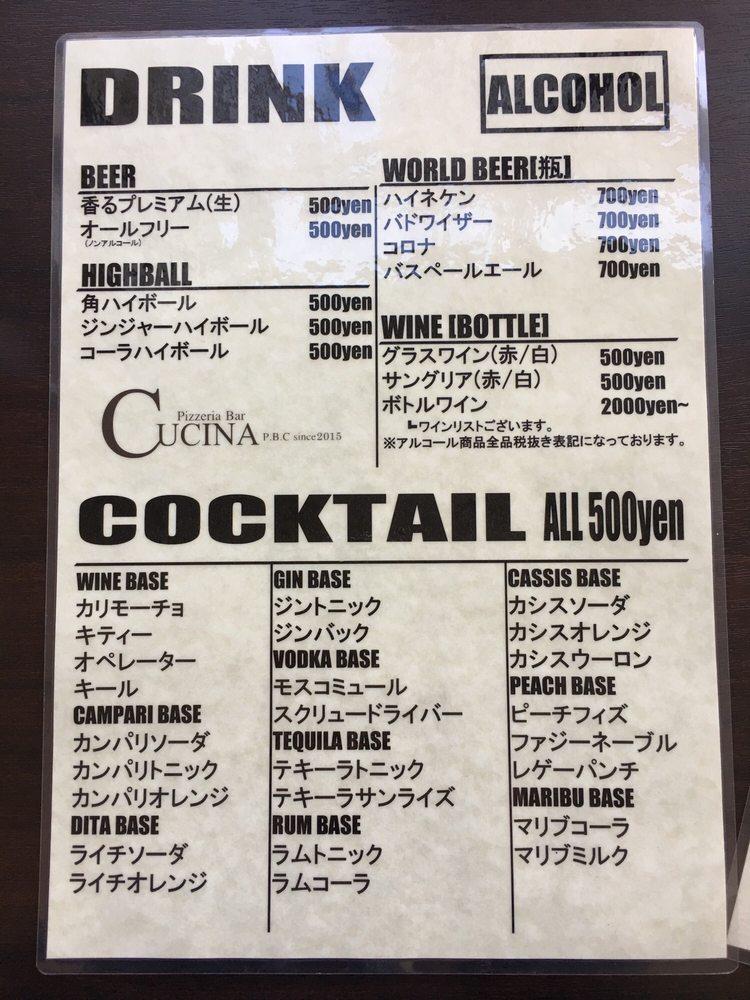 DRINK
ALCOHOL
BEER
香るプレミアム(生) 500yen
オールフリー 500yen
(ノンアルコール)
HIGHBALL
角ハイボール 500yen
ジンジャーハイボール 500yen
コーラハイボール 500yen
Pizzeria Bar
CUCINA P.B.C since2015
WORLD BEER[瓶]
ハイネケン 700yen
バドワイザー 700yen
コロナ 700yen
バスペールエール 700yen
WINE [BOTTLE]
グラスワイン(赤/白) 500yen
サングリア(赤/白) 500yen
ボトルワイン 2000yen~
┗ワインリストございます。
※アルコール商品全品税抜き表記になっております。
COCKTAIL ALL 500yen
WINE BASE
カリモーチョ
キティー
オペレーター
キール
CAMPARI BASE
カンパリソーダ
カンパリトニック
カンパリオレンジ
DITA BASE
ライチソーダ
ライチオレンジ
GIN BASE
ジントニック
ジンバック
VODKA BASE
モスコミュール
スクリュードライバー
TEQUILA BASE
テキーラトニック
テキーラサンライズ
RUM BASE
ラムトニック
ラムコーラ
CASSIS BASE
カシスソーダ
カシスオレンジ
カシスウーロン
PEACH BASE
ピーチフィズ
ファジーネーブル
レゲーパンチ
MARIBU BASE
マリブコーラ
マリブミルク